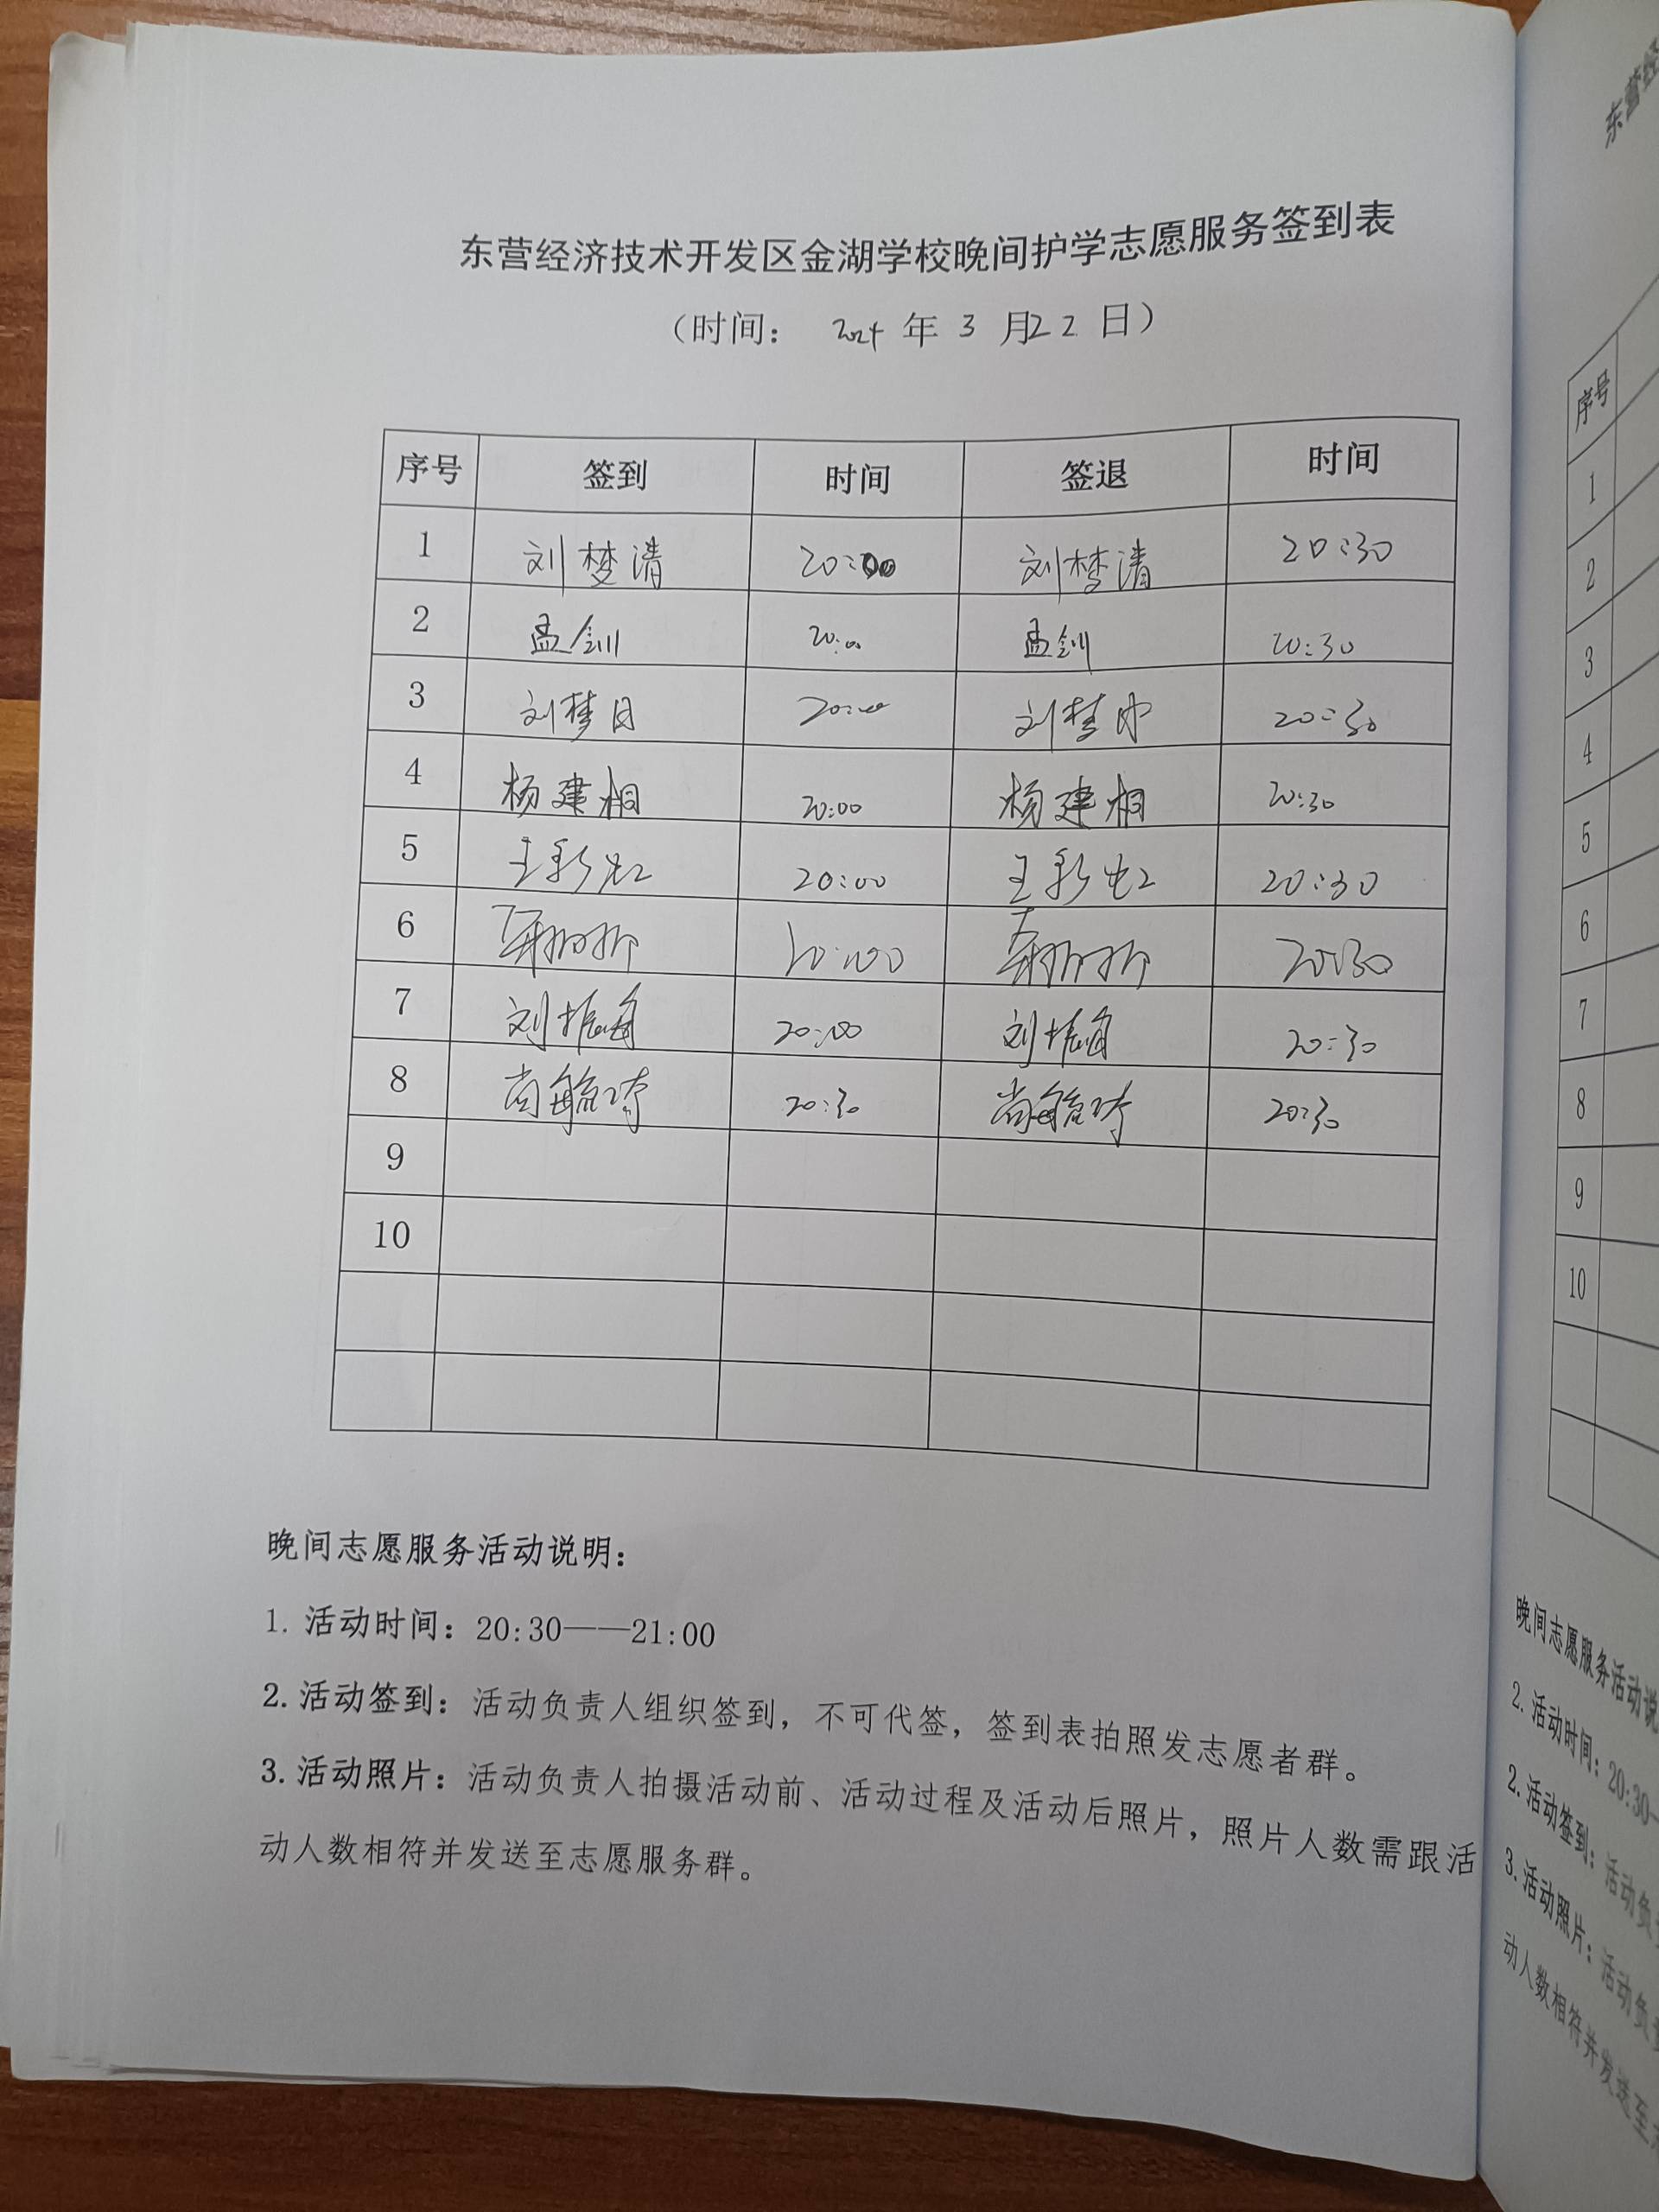 东营经济技术开发区金湖学校晚间护学志愿服务签到表
（时间： 2024 年 3 月 22 日）
序号 签到 时间 签退 时间
1 刘梦清 20:00 刘梦清 20:30
2 孟钊 20:00 孟钊 20:30
3 刘梦 20:00 刘梦 20:30
4 杨建相 20:00 杨建相 20:30
5 王彩虹 20:00 王彩虹 20:30
6 20:00 20:30
7 刘振海 20:00 刘振海 20:30
8 尚毓琦 20:30 尚毓琦 20:30
9
10
晚间志愿服务活动说明：
1. 活动时间：20:30——21:00
2. 活动签到：活动负责人组织签到，不可代签，签到表拍照发志愿者群。
3. 活动照片：活动负责人拍摄活动前、活动过程及活动后照片，照片人数需跟活
动人数相符并发送至志愿服务群。
东营经
序号
1
2
3
4
5
6
7
8
9
10
晚间志愿服务活动说
2. 活动时间：20:30
2. 活动签到：活动负
3. 活动照片：活动负
动人数相符并发送至